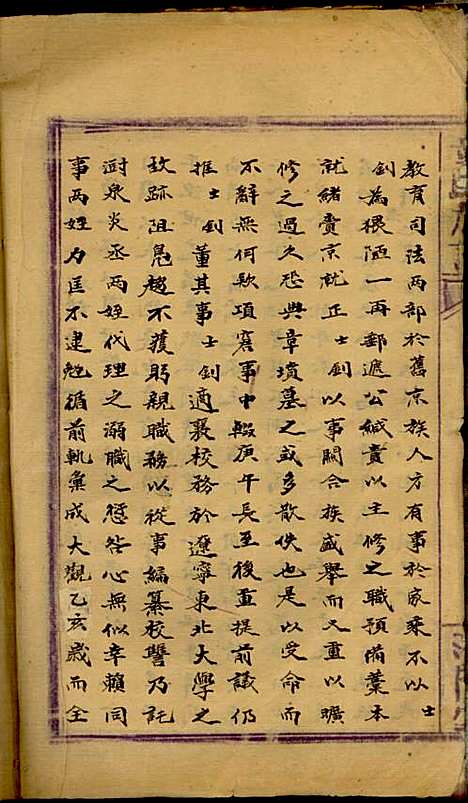 教育司法两部於舊京族人方有事於家乘不以士
釗為猥陋一再郵遞公緘責以主修之職預備藁本
就緒賫京就正士釗以事關合族盛舉而又重以曠
修之過久恐典章墳墓之或多散佚也是以受命而
不辭無何款項窘事中輟庚午長至後重提前議仍
推士釗董其事士釗適襄校務於遼寧東北大學之
故跡阻鳧趨不獲躬親職務以從事編纂校讐乃託
澍泉炎丞两姪代理之溺職之愆咎心無似幸賴同
事两姓力匡不逮勉循前軌彙成大觀乙亥歲而全